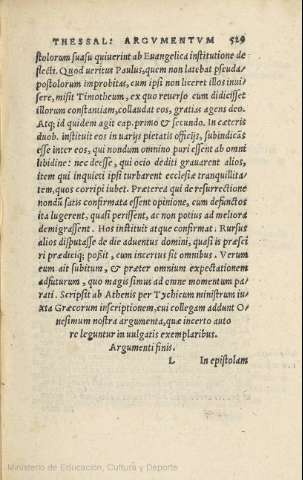 THESSAL: ARGVMENTVM 529
stolorum suasu quiuerint ab Euangelica institutione de
flecti. Quod ueritus Paulus, quem non latebat pseuda-
postolorum improbitas, cum ipsi non liceret illos inui-
sere, misit Timotheum, ex quo reuerso cum didicisset
illorum constantiam, collaudat eos, gratias agens deo.
Atq; id quidem agit cap. primo & secundo. In cæteris
duob. instituit eos in uarijs pietatis officijs, subindicās
esse inter eos, qui nondum omnino puri essent ab omni
libidine: nec deesse, qui ocio dediti grauarent alios,
item qui inquieti ipsi turbarent ecclesiæ tranquillita/
tem, quos corripi iubet. Præterea qui de resurrectione
nondū satis confirmata essent opinione, cum defunctos
ita lugerent, quasi perissent, ac non potius ad meliora
demigrassent. Hos instituit atque confirmat. Rursus
alios disputasse de die aduentus domini, quasi is præsci
ri prædiciq; possit, cum incertus sit omnibus. Verum
eum ait subitum, & præter omnium expectationem
adfuturum, quo magis simus ad omne momentum pa-
rati. Scripsit ab Athenis per Tychicum ministrum iu-
xta Græcorum inscriptionem, cui collegam addunt O-
nesimum nostra argumenta, quæ incerto auto
re leguntur in uulgatis exemplaribus.
Argumenti finis.
L In epistolam
Ministerio de Educación, Cultura y Deporte